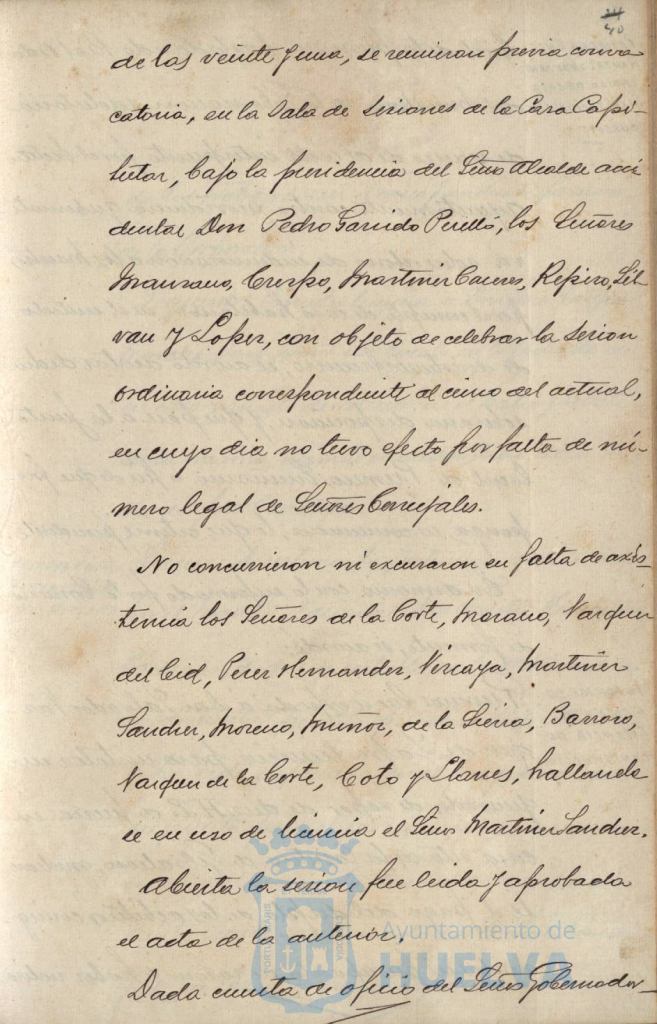 40
de las veinte y una, se reunieron previa convo
catoria, en la Sala de Sesiones de la Casa Capi-
tular, bajo la presidencia del Señor Alcalde acci
dental Don Pedro Garrido Perelló, los Señores
Manzano, Crespo, Martinez Caceres, Repiso, Gal
van y Lopez, con objeto de celebrar la sesion
ordinaria correspondiente al cinco del actual,
en cuyo dia no tuvo efecto por falta de nú-
mero legal de Señores Concejales.
No concurrieron ni excusaron su falta de axis-
tencia los Señores de la Corte, Morano, Vazquez
del Cid, Perez Hernandez, Vizcaya, Martinez
Sanchez, Moreno, Muñoz, de la Sierra, Barroso,
Vazquez de la Corte, Coto y Llanes, hallando
se en uso de licencia el Señor Martinez Sanchez.
Abierta la sesion fue leida y aprobada
el acta de la anterior.
Dada cuenta de oficio del Señor Gobernador
Ayuntamiento de
HUELVA